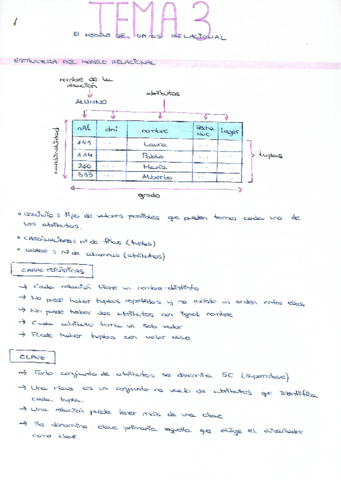 1
TEMA 3
El MODELO DE DATOS RELACIONAL
ESTRUCTURA DEL MODELO RELACIONAL
nombre de la
relación
atributos
ALUMNO
nM dni nombre Fecha Nac. Lugar
Laura
Pablo
María
Alberto
cardinalidad
tuplas
grado
• DOMINIO: tipo de valores posibles que pueden tomar cada uno de
los atributos.
• CARDINALIDAD: nº de filas (tuplas)
• GRADO: nº de columnas (atributos)
CARACTERÍSTICAS
→ Cada relación tiene un nombre distinto
→ No puede haber tuplas repetidas y no existe un orden entre ellas
→ No puede haber dos atributos con igual nombre
→ Cada atributo toma un solo valor
→ Puede haber tuplas con valor nulo
CLAVE
→ Todo conjunto de atributos se denomina SC (superclave)
→ Una clave es un conjunto no vacío de atributos que identifica
cada tupla.
→ Una relación puede tener más de una clave
→ Se denomina clave primaria aquella que elige el diseñador
como clave